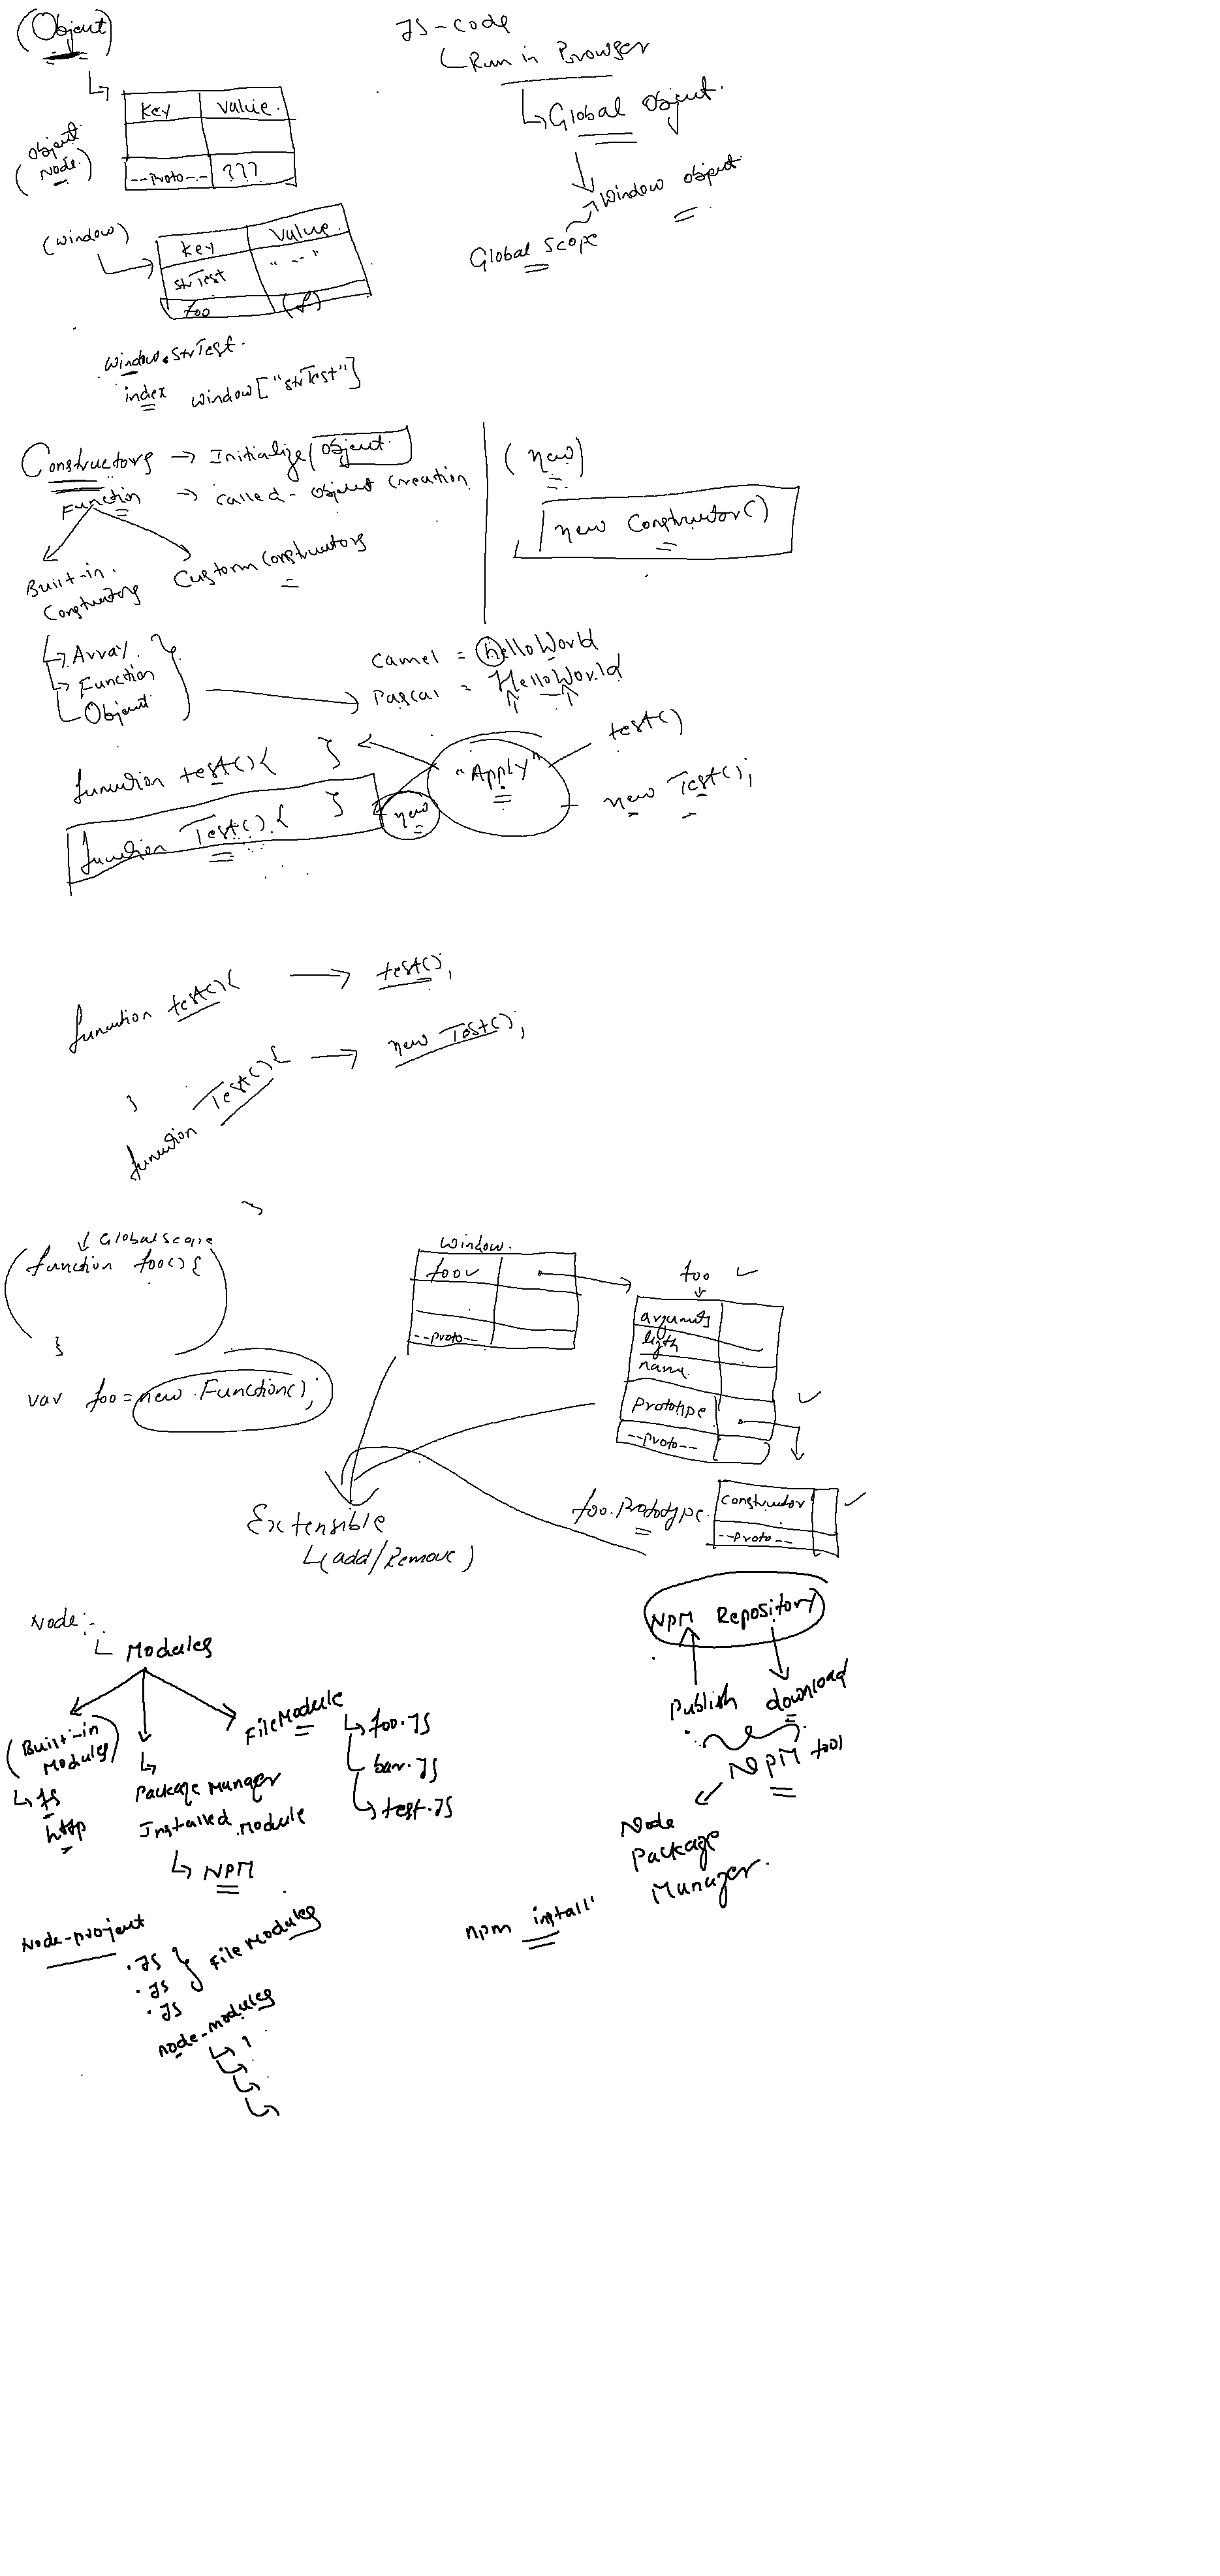 (Object)
Key value.
--proto-- ???
(Object Node)
JS-code
Run in Browser
Global Object.
Window object
Global Scope
(window)
Key value.
strTest "--"
foo (f)
window.strTest.
index window["strTest"]
Constructors → Initialize Object
Function → called - object creation
Built-in.
Constructors
Custom Constructors
Array.
Function
Object
(new)
new Constructor()
Camel = helloWorld
Pascal = HelloWorld
function test(){ }
function Test(){ }
new
"Apply"
test()
new Test();
function test(){ → test();
}
function Test(){ → new Test();
}
GlobalScope
function foo(){
}
var foo = new Function();
Window.
foo
--proto--
foo
name
Prototype
--proto--
foo.Prototype.
Constructor
--proto--
Extensible
(add/Remove)
Node:-
Modules
(Built-in Modules)
fs
http
Package Manger
Installed Module
NPM
FileModule
foo.JS
bar.JS
test.JS
NPM Repository
Publish download
NPM tool
Node
Package
Manager.
npm install
Node-project
.JS
.JS
.JS
FileModules
node-modules